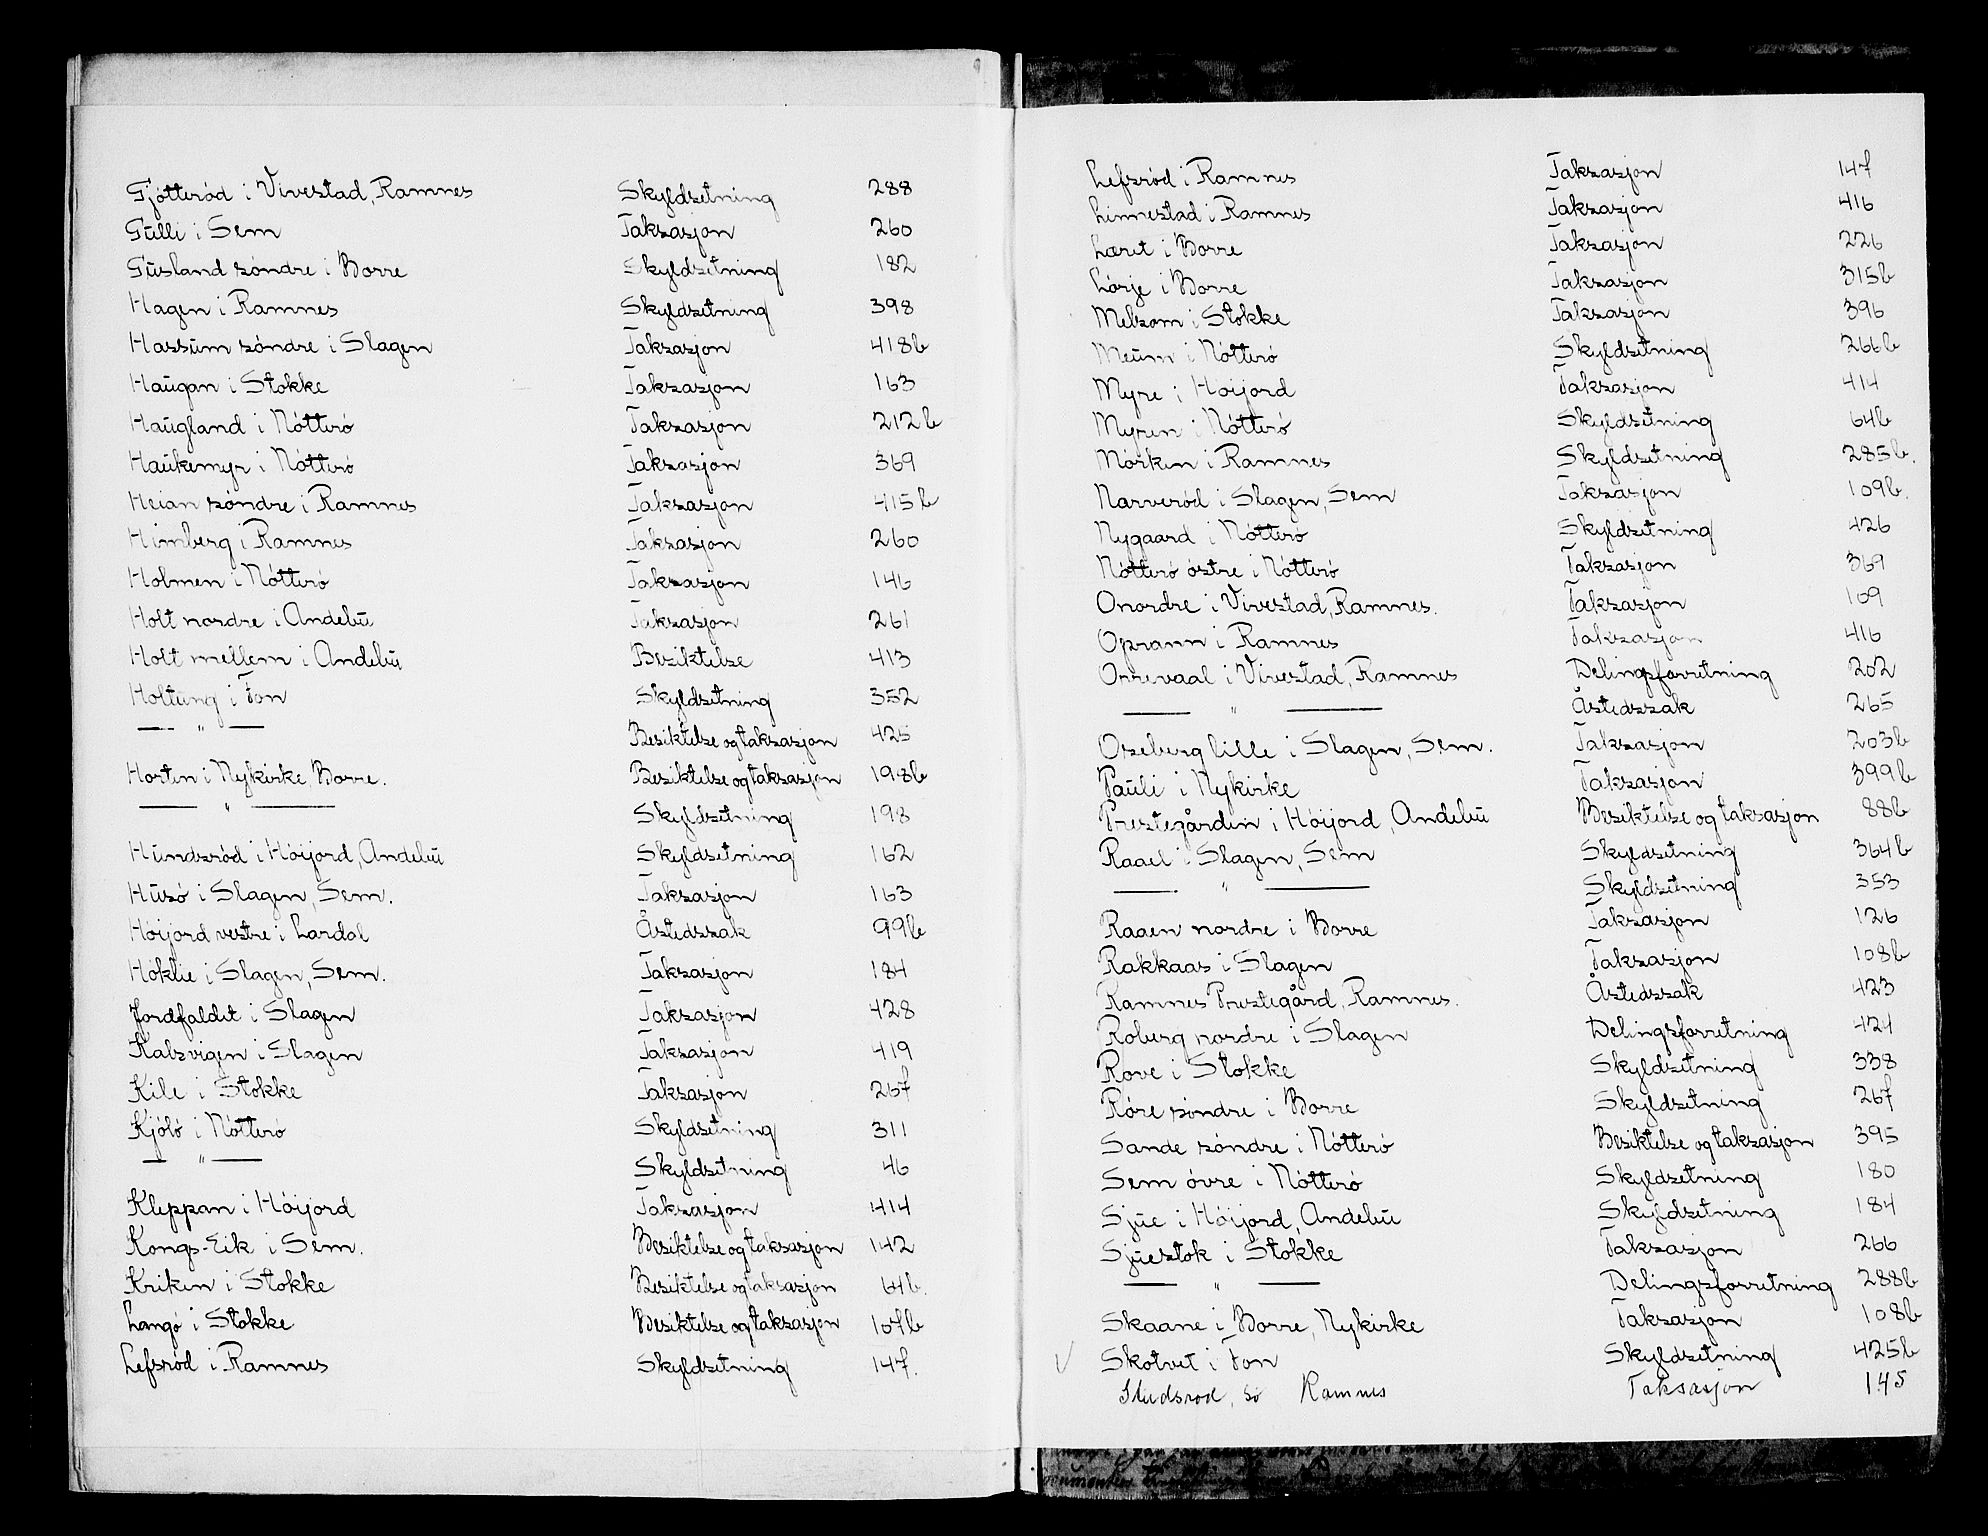 Gjótteród i Vivestad, Ramnes Skyldsetning 288
Gulli i Sem Taksasjon 260
Gusland sóndre i Borre Skyldsetning 182
Hagen i Ramnes Skyldsetning 398
Hassum sóndre i Slagen Taksasjon 418b
Haugan i Stokke Taksasjon 163
Haugland i Nótteró Taksasjon 212b
Haukemyr i Nótteró Taksasjon 369
Heian sóndre i Ramnes Taksasjon 415b
Himberg i Ramnes Taksasjon 260
Holmen i Nótteró Taksasjon 146
Holt nordre i Andebu Taksasjon 261
Holt mellem i Andebu Besiktelse 413
Holtung i Fon Skyldsetning 352
— " — Besiktelse og taksasjon 425
Horten i Nykirke, Borre. Besiktelse og taksasjon 198b
— " — Skyldsetning 198
Hundsród i Hóijord, Andebu Skyldsetning 162
Husó i Slagen, Sem. Taksasjon 163
Hóijord vestre i Lardal Åstedssak 99b
Hóklie i Slagen, Sem. Taksasjon 184
Jordfaldet i Slagen Taksasjon 428
Kalsvigen i Slagen Taksasjon 419
Kile i Stokke Taksasjon 267
Kjóló i Nótteró Skyldsetning 311
— " — Skyldsetning 46
Kleppan i Hóijord Taksasjon 414
Kongs-Eik i Sem. Besiktelse og taksasjon 142
Kriken i Stokke Besiktelse og taksasjon 64b.
Langó i Stokke Besiktelse og taksasjon 107b
Lefsród i Ramnes Skyldsetning 147.
Lefsród i Ramnes Taksasjon 147
Linnestad i Ramnes Taksasjon 416
Læret i Borre Taksasjon 226
Lórje i Borre Taksasjon 315b
Melsom i Stokke Taksasjon 396
Meum i Nótteró Skyldsetning 266b
Myre i Hóijord Taksasjon 414
Myren i Nótteró Skyldsetning 64b
Mórken i Ramnes Skyldsetning 285b.
Narveród i Slagen, Sem Taksasjon 109b.
Nygaard i Nótteró Skyldsetning 426
Nótteró óstre i Nótteró Taksasjon 369
Onordre i Vivestad, Ramnes. Taksasjon 169
Oprann i Ramnes Taksasjon 416
Orrevaal i Vivestad, Ramnes Delingsforretning 202
— " — Åstedssak 265
Oseberg lille i Slagen, Sem. Taksasjon 203b
Pauli i Nykirke Taksasjon 399b
Prestegården i Hóijord, Andebu Besiktelse og taksasjon 88b
Raael i Slagen, Sem Skyldsetning 364b
— " — Skyldsetning 353
Raaen nordre i Borre Taksasjon 126
Rakkaas i Slagen Taksasjon 108b
Ramnes Prestegård, Ramnes. Åstedssak 423
Roberg nordre i Slagen Delingsforretning 424
Rove i Stokke Skyldsetning 338
Róre sóndre i Borre Skyldsetning 267
Sande sóndre i Nótteró Besiktelse og taksasjon 395
Sem óvre i Nótteró Skyldsetning 180
Sjue i Hóijord, Andebu Skyldsetning 184
Sjuestok i Stokke Taksasjon 266
— " — Delingsforretning 288b
Skaane i Borre, Nykirke Taksasjon 108b
Skotvet i Fon Skyldsetning 425b
Studsrod, sö Ramnes Taksasjon 145